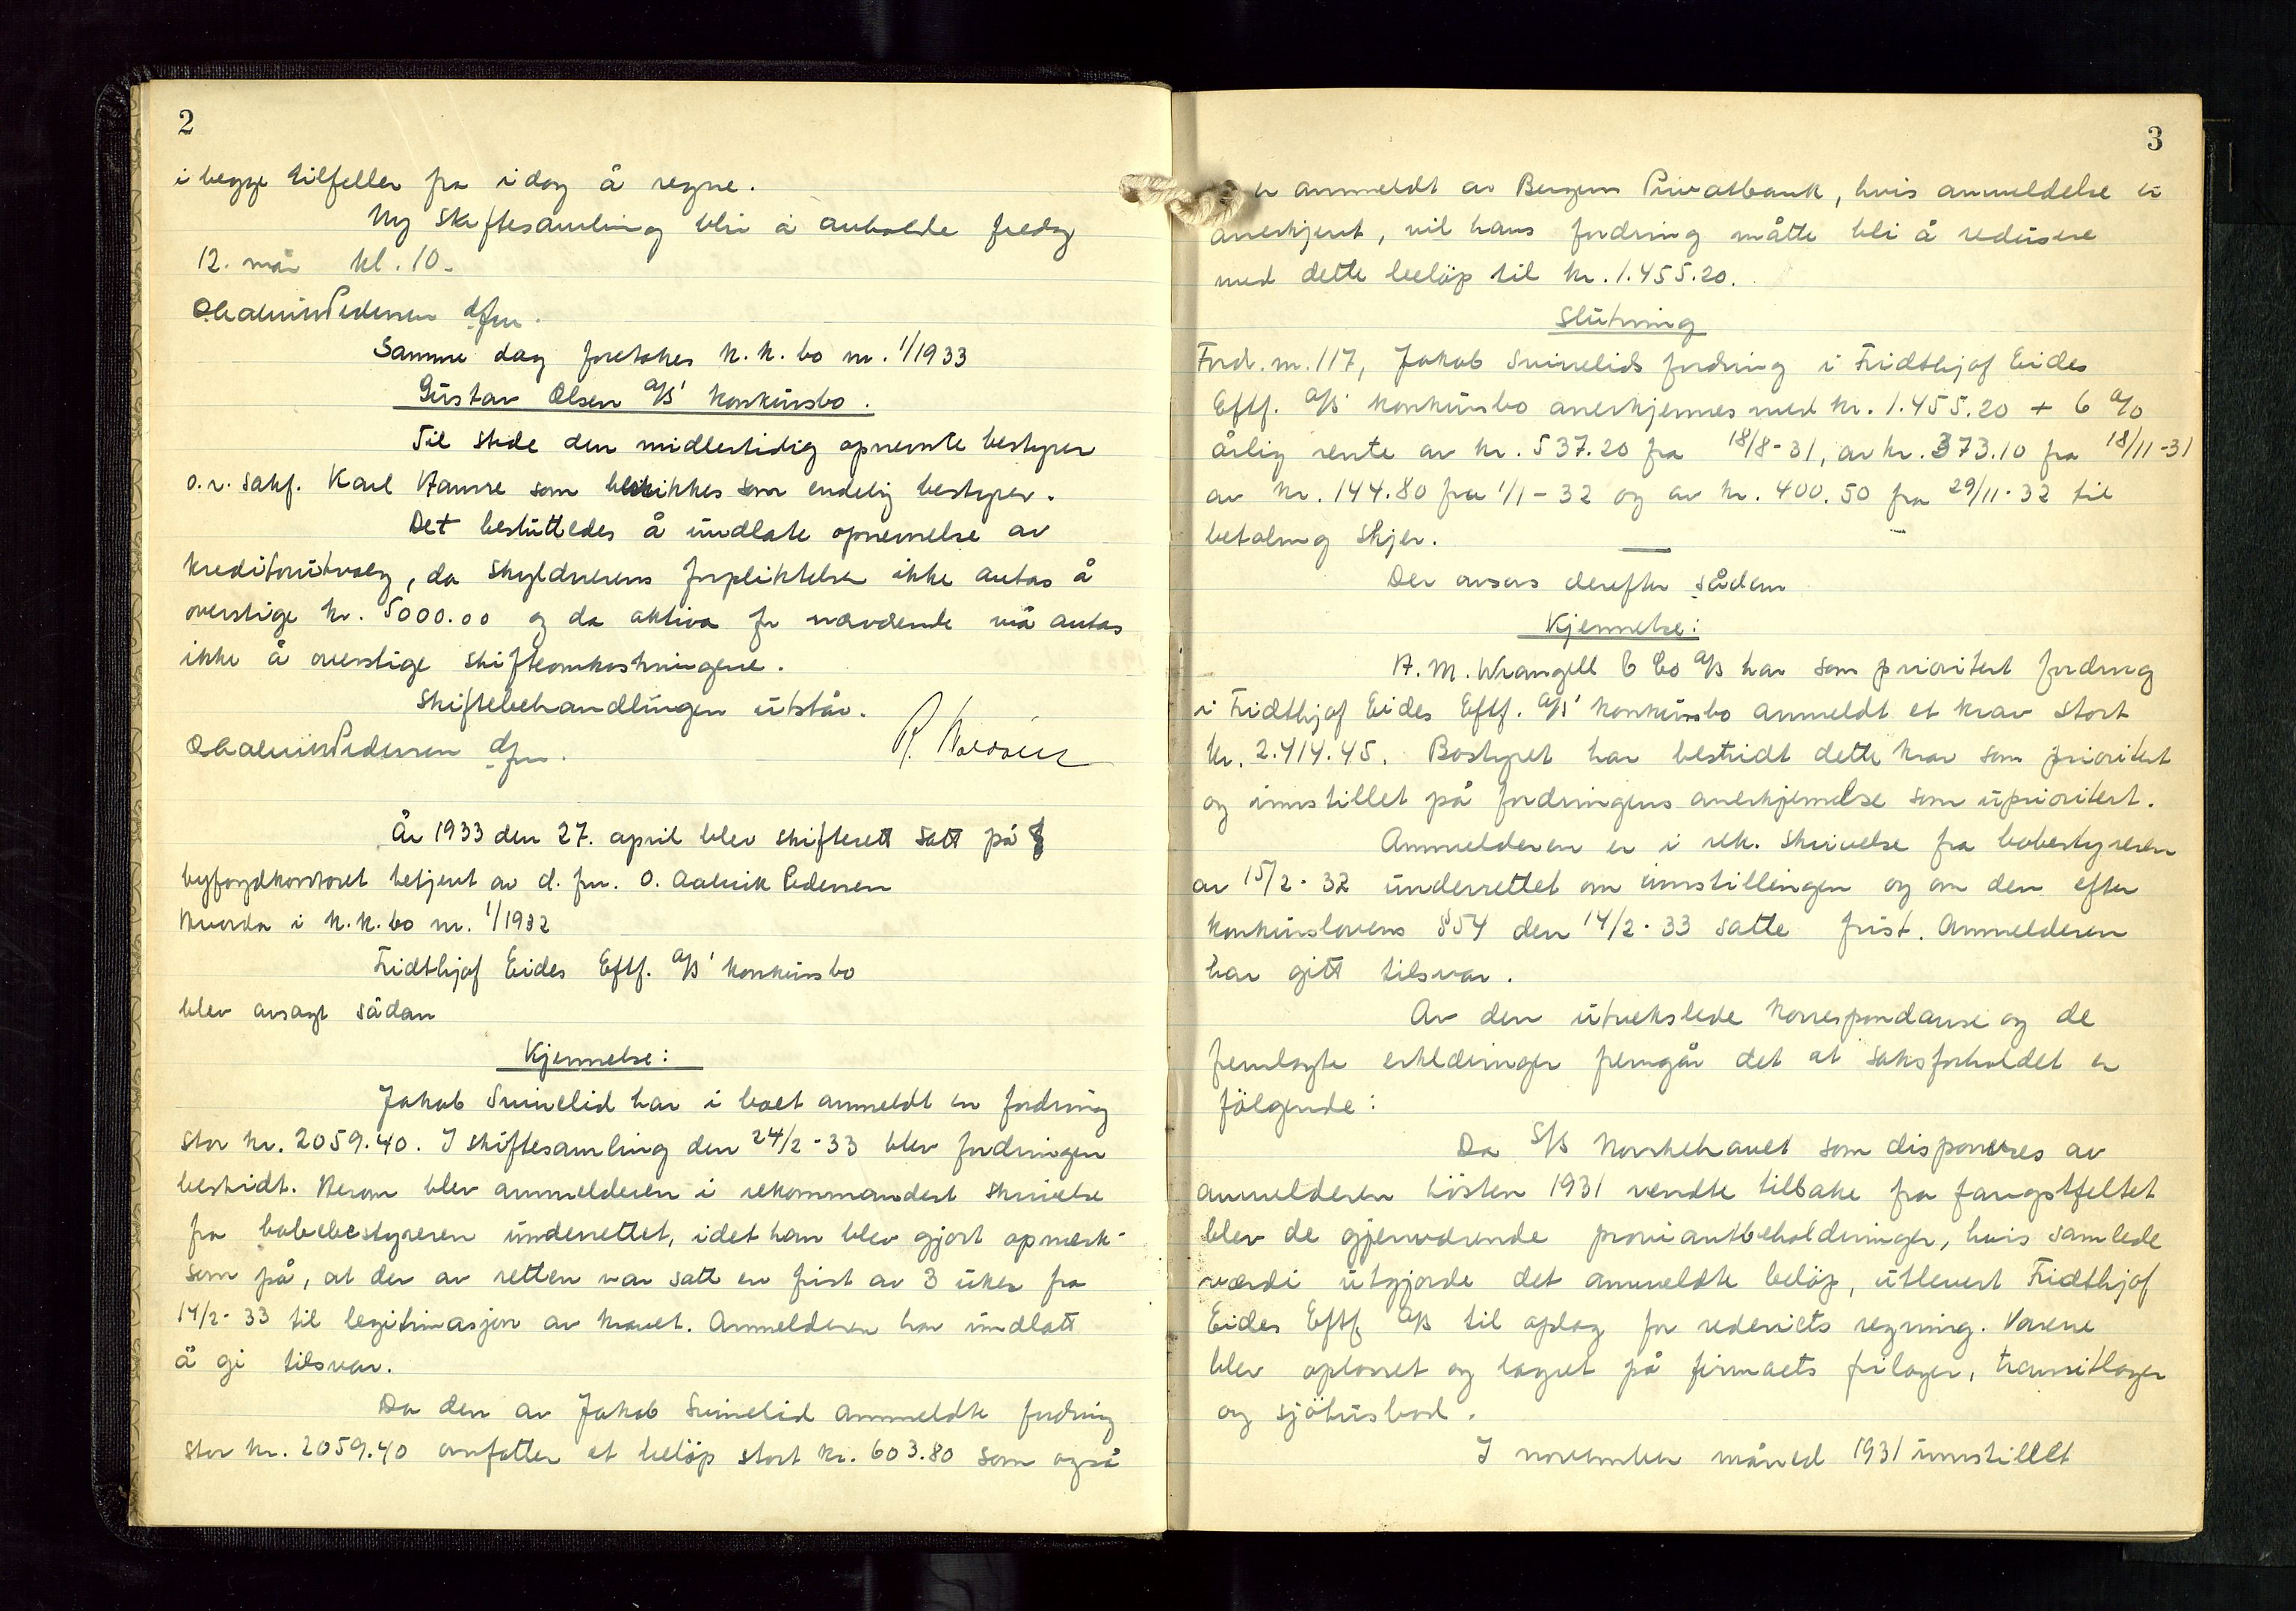 2
i begge tilfeller fra idag å regne.
Ny skiftesamling blir å avholde fredag
12. mai kl. 10.
O Aalvik Pedersen dfm.
Samme dag foretokes k.k. bo nr. 1/1933
Gustav Olsen A/S' konkursbo.
Til stede den midlertidig opnevnte bestyrer
o.r. sakf. Karl Hamre som beskikkes som endelig bestyrer.
Det besluttedes å undlate opnevnelse av
kreditorutvalg, da skyldnerens forpliktelser ikke antas å
overstige kr. 5000.00 og da aktiva for nærværende må antas
ikke å overstige skifteomkostningene.
Skiftebehandlingen utstår.
O Aalvik Pedersen dfm.
År 1933 den 27. april blev skifterett satt på
byfogdkontoret betjent av d. fm. O. Aalvik Pedersen
Hvorda i k.k. bo nr. 1/1932
Fridthjof Eides Eftf. A/S' konkursbo
blev avsagt sådan
Kjennelse:
Jakob Svinelid har i boet anmeldt en fordring
stor kr. 2059.40. I skiftesamling den 24/2-33 blev fordringen
bestridt. Herom blev anmelderen i rekommandert skrivelse
fra bobebestyreren underrettet, idet han blev gjort opmerk-
som på, at der av retten var satt en frist av 3 uker fra
14/2-33 til legitimasjon av kravet. Anmelderen har undlatt
å gi tilsvar.
Da den av Jakob Svinelid anmeldte fordring
stor kr. 2059.40 omfatter et beløp stort kr. 603.80 som også
3
er anmeldt av Bergens Privatbank, hvis anmeldelse er
anerkjent, vil hans fordring måtte bli å redusere
med dette beløp til kr. 1.455.20.
Slutning
Ford. nr. 117, Jakob Svinelids fordring i Fridthjof Eides
Eftf. A/S' konkursbo anerkjennes med kr. 1.455.20 + 6 %
årlig rente av kr. 537.20 fra 18/8-31, av kr. 373.10 fra 18/11-31
av kr. 144.80 fra 1/1-32 og av kr. 400.50 fra 29/11-32 til
betaling skjer.
Der avsas derefter sådan
Kjennelse:
H. M. Wrangell & Co A/S har som prioritert fordring
i Fridthjof Eides Eftf. A/S' konkursbo anmeldt et krav stort
kr. 2.414.45. Bostyret har bestridt dette krav som prioritert
og innstillet på fordringens anerkjennelse som uprioritert.
Anmelderen er i rek. skrivelse fra bobestyreren
av 15/2-32 underrettet om innstillingen og om den efter
konkurslovens §54 den 14/2-33 satte frist. Anmelderen
har gitt tilsvar.
Av den utvekslede korrespondanse og de
fremlagte erklæringer fremgår det at saksforholdet er
følgende:
Da S/S Norskehavet som disponeres av
anmelderen høsten 1931 vendte tilbake fra fangstfeltet
blev de gjenværende proviantbeholdninger, hvis samlede
værdi utgjorde det anmeldte beløp, utlevert Fridthjof
Eides Eftf. A/S til oplag for rederiets regning. Varene
blev oplosset og lagret på firmaets frilager, transitlager
og sjøhusbod.
I november måned 1931 innstillet